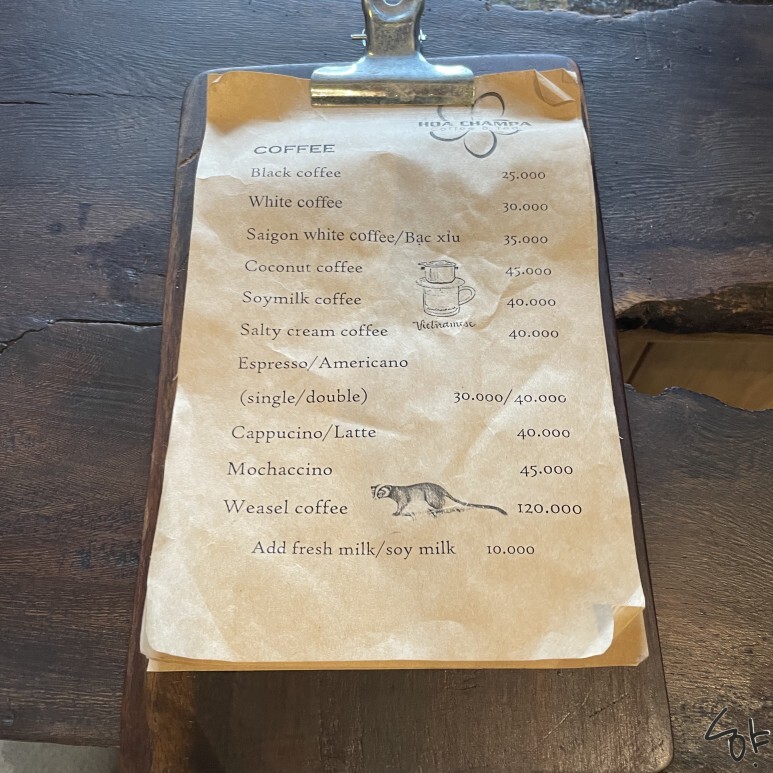 HOA CHAMPA
Coffee & Tea
COFFEE
Black coffee 25.000
White coffee 30.000
Saigon white coffee/Bạc xỉu 35.000
Coconut coffee 45.000
Soymilk coffee 40.000
Vietnamese
Salty cream coffee 40.000
Espresso/Americano
(single/double) 30.000/40.000
Cappucino/Latte 40.000
Mochaccino 45.000
Weasel coffee 120.000
Add fresh milk/soy milk 10.000